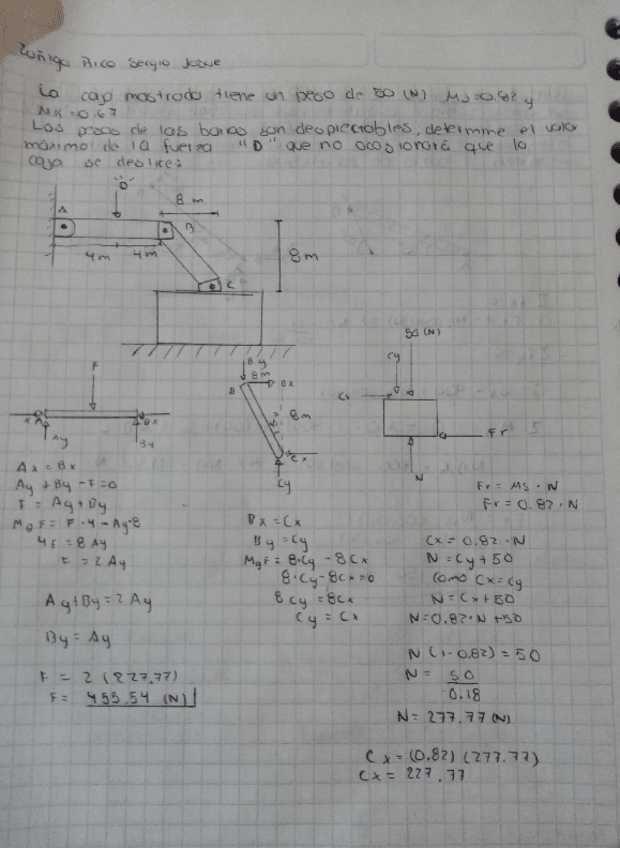 Zuñiga Rico Sergio Josue
La caja mostrada tiene un peso de 50 (N) Ms=0.82 y
Mk=0.67
Los pesos de las barras son despreciables, determine el valor
máximo de la fuerza "D" que no ocasionará que la
caja se deslice:
"D"
8 m
A
B
4m
4m
8m
C
50 (N)
Cy
F
By
8m
Bx
B
8m
Ax
Bx
Ay
By
Cx
Cy
Fr
N
Ax = Bx
Ay + By - F = 0
F = Ay + By
MBF = F·4 - Ay·8
4F = 8 Ay
F = 2 Ay
Ay+By = 2 Ay
By = Ay
F = 2 (227.77)
F = 455.54 (N)
Bx = Cx
By = Cy
MBF = 8·Cy - 8Cx
8·Cy-8Cx=0
8Cy = 8Cx
Cy = Cx
Fr = Ms · N
Fr = 0.82 · N
Cx = 0.82 · N
N = Cy + 50
Como Cx = Cy
N = Cx + 50
N = 0.82·N +50
N (1-0.82) = 50
N = 50
0.18
N = 277.77 (N)
Cx = (0.82) (277.77)
Cx = 227.77